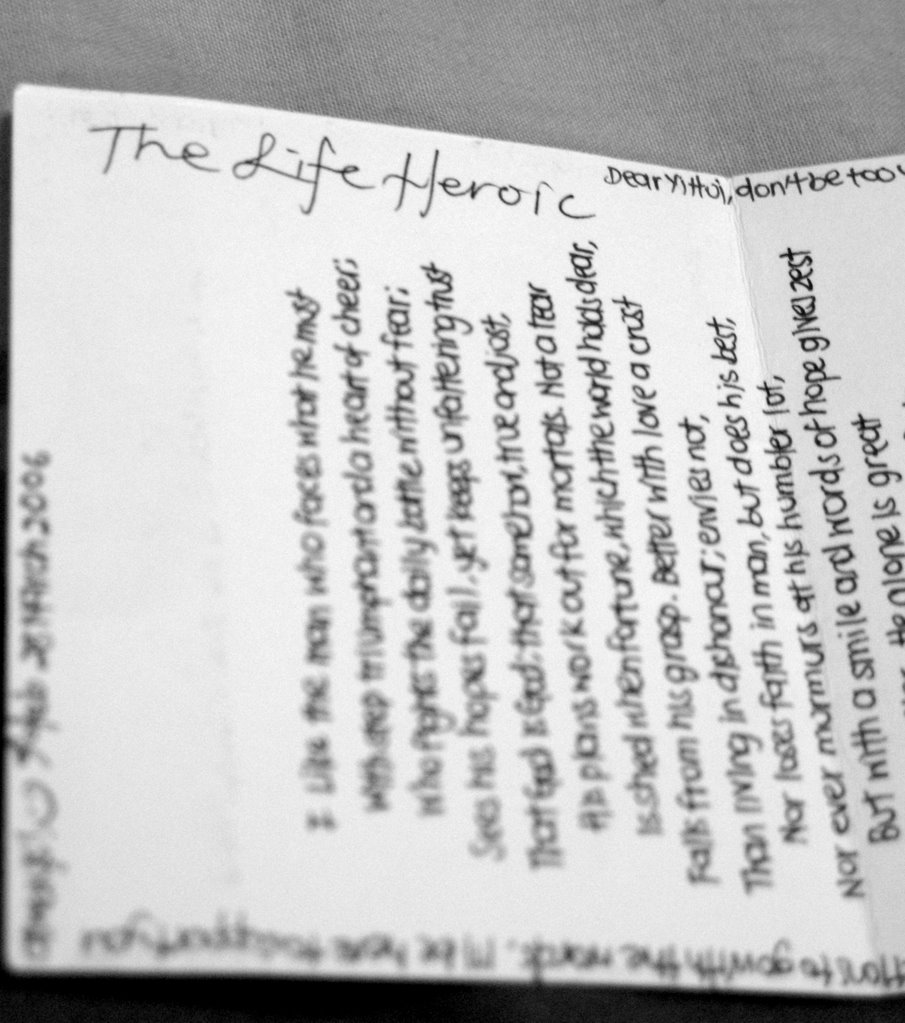 The Life Heroic
Dear Yi Hui, don't be too
I like the man who faces what he must
With step triumphant and a heart of cheer;
Who fights the daily battle without fear;
Sees his hopes fail, yet keeps unfaltering trust
That God is God: that somehow, true and just,
His plans work out for mortals. Not a tear
Is shed when fortune, which the world holds dear,
Falls from his grasp. Better with love a crust
Than living in dishonour; envies not,
Nor loses faith in man, but does his best,
Nor ever murmurs at his humbler lot,
But with a smile and words of hope gives zest
He alone is great
to go with the words. I'll be here to support you
28 March 2006